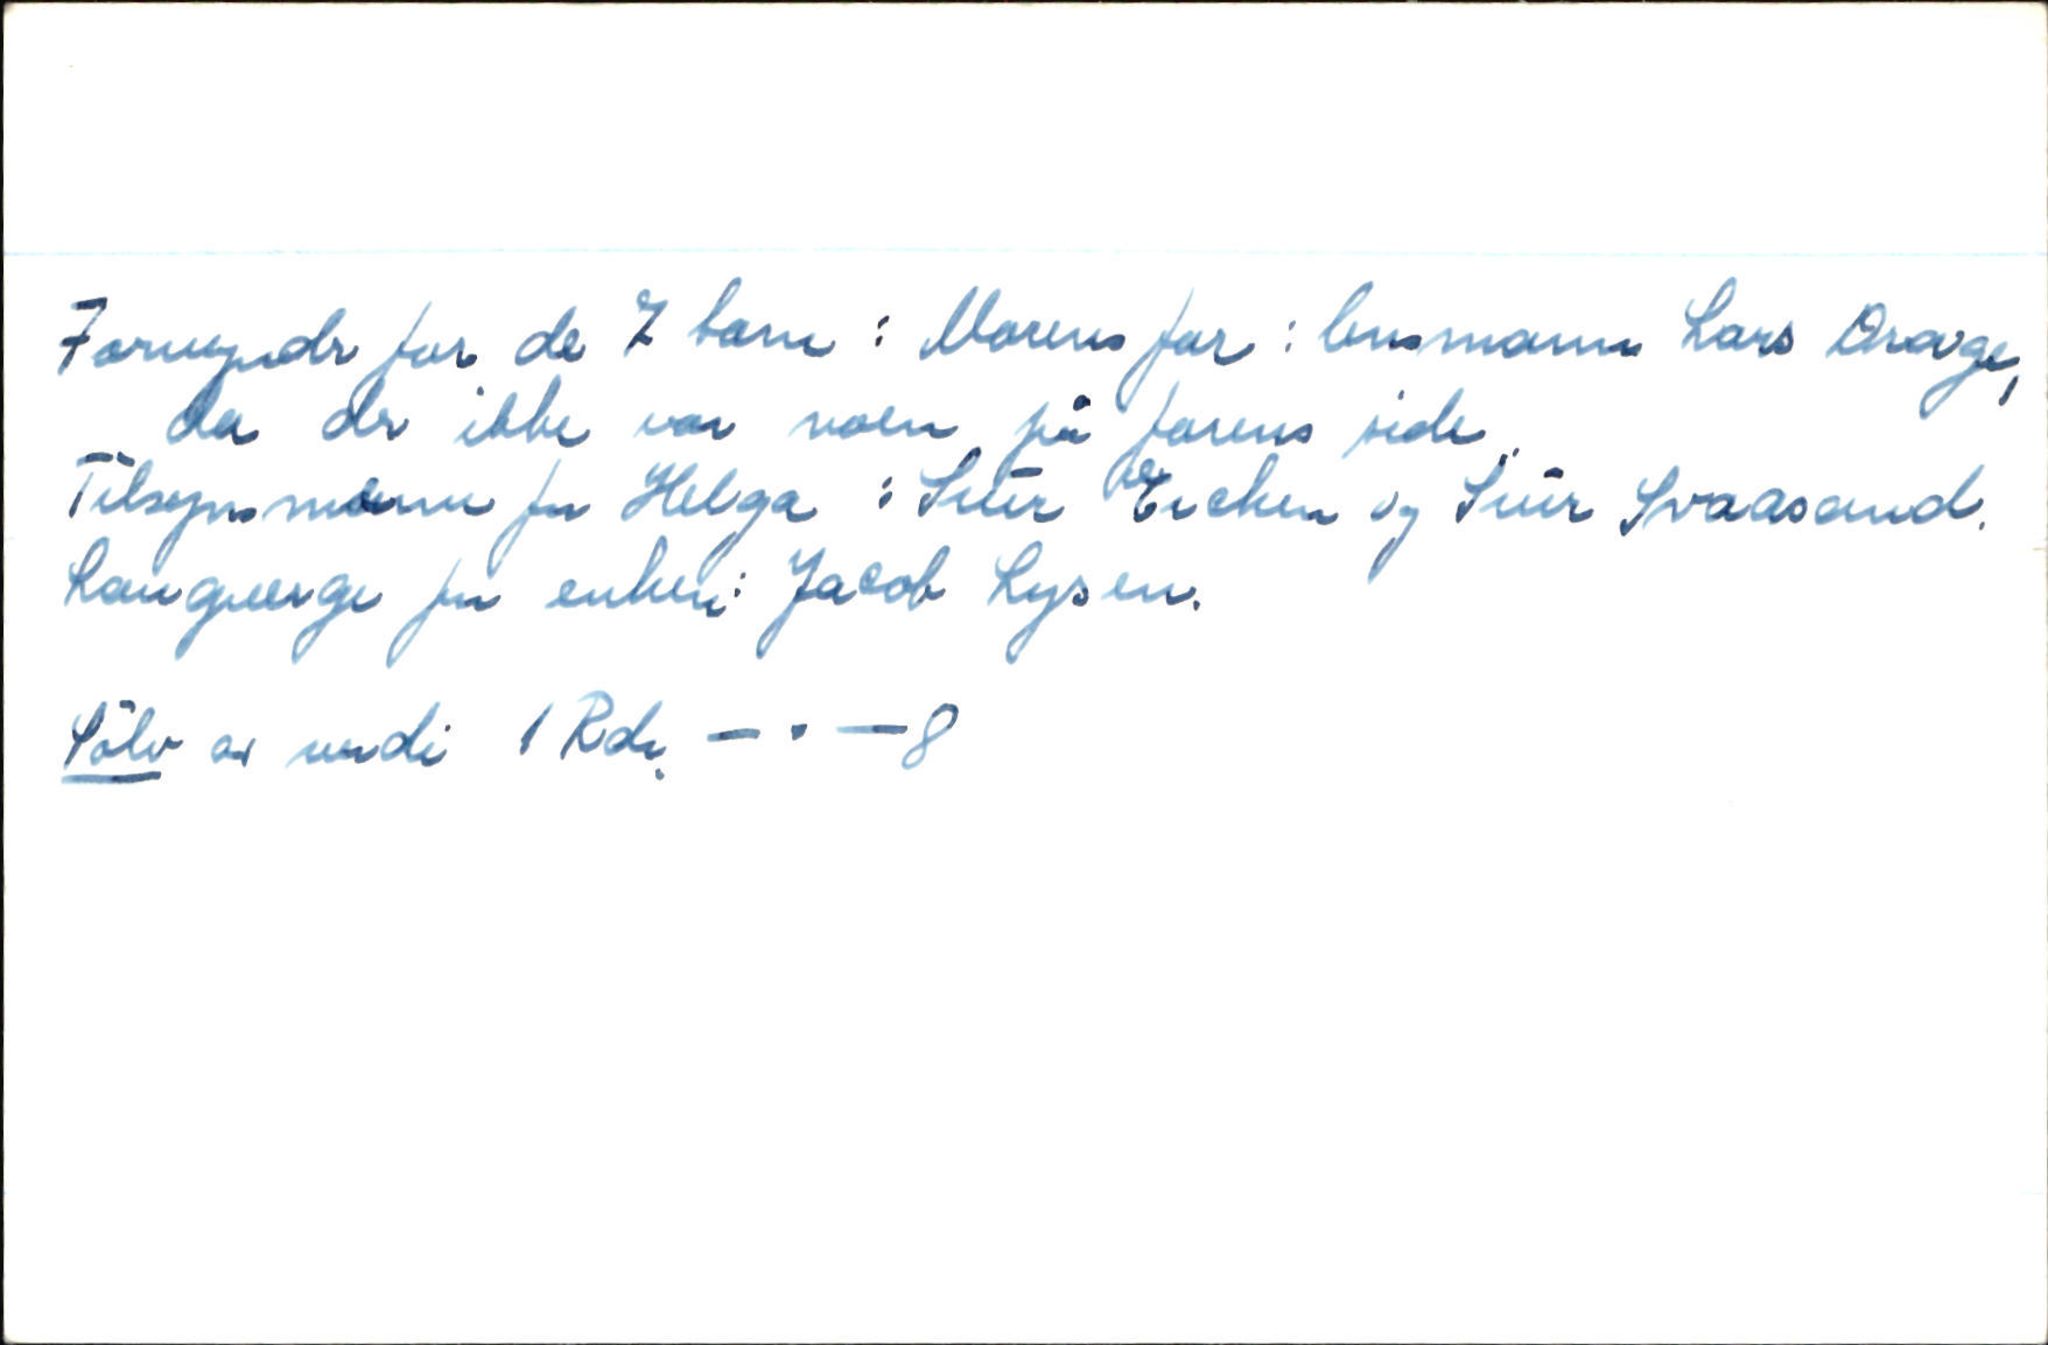 Formyndr for de 7 barn : Morens far : lensmann Lars Drage,
da der ikke var noen på farens side.
Tilsynsmenn for Helga : Siur Eichen og Siur Svaasand.
Laugverge for enken: Jacob Lysen.
Sölv av verdi 1 Rdr. — · — 8